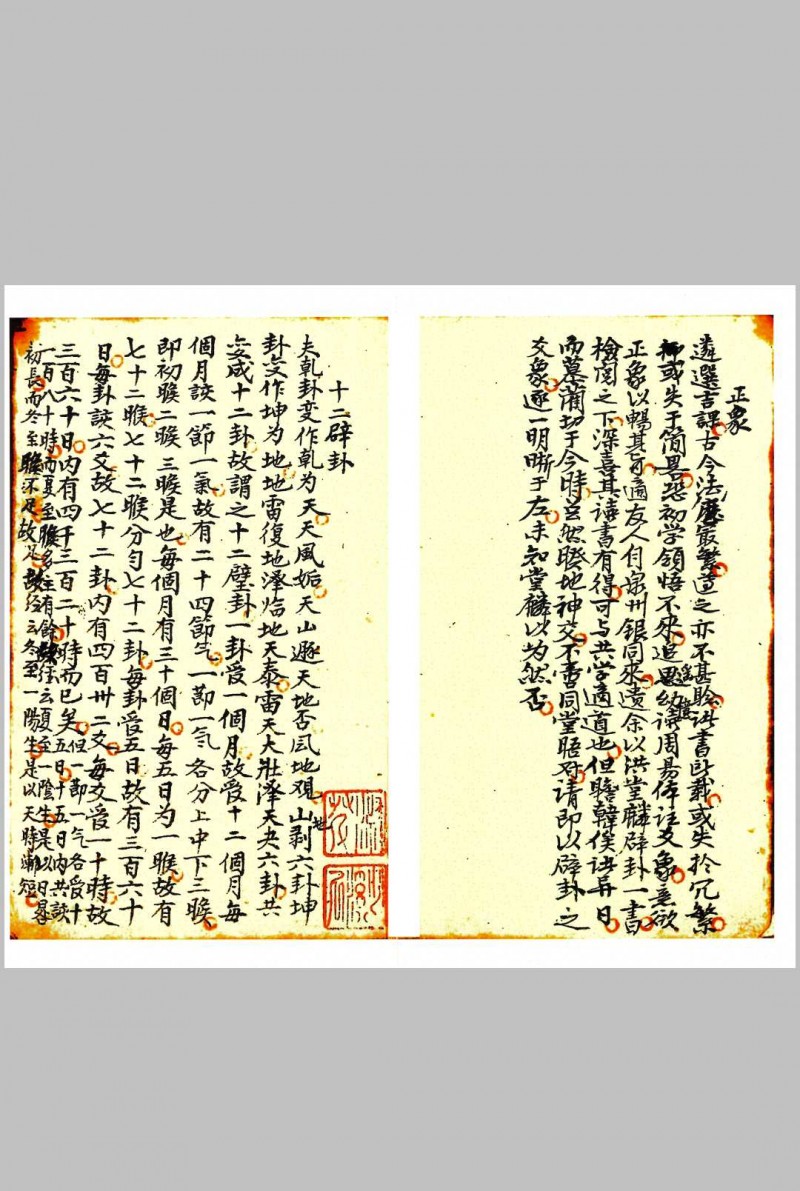 正象
遴選吉課古今法歷最繁道之亦不甚聆法書所載或失於冗繁
抑或失于簡畧恐初学領悟不來追思幼讀周易倖註爻象意欲
正象以暢其旨適友人自泉州銀同來遺余以洪堂麟辟卦一書
檢閱之下深喜其讀書有得可与共学適道也但瞻韓俟諸异日
而慕藺切于今時茲然睽地神交不啻同堂晤对請即以辟卦之
爻象逐一明晰于左未知堂麟以为然否
十二辟卦
夫乾卦变作乾为天天風姤天山遯天地否风地观山地剥六卦坤
卦变作坤为地地雷復地澤临地天泰雷天大壯澤天夬六卦共
变成十二卦故謂之十二壁卦一卦受一個月故受十二個月每
個月該一節一氣故有二十四節气一節一气各分上中下三睺
即初睺二睺三睺是也每個月有三十個日每五日为一睺故有
七十二睺七十二睺分匀七十二卦每卦受五日故有三百六十
日每卦該六爻故七十二卦内有四百卅二爻每爻受一十時故
三百六十日内有四千三百二十時而已矣但一節一气各受十
五日十五日内共該
一百八十時而夏至睺多註有餘經云夏至一陰生是以日晷
初長而冬至睺不足故足經云冬至一陽生是以天時漸短